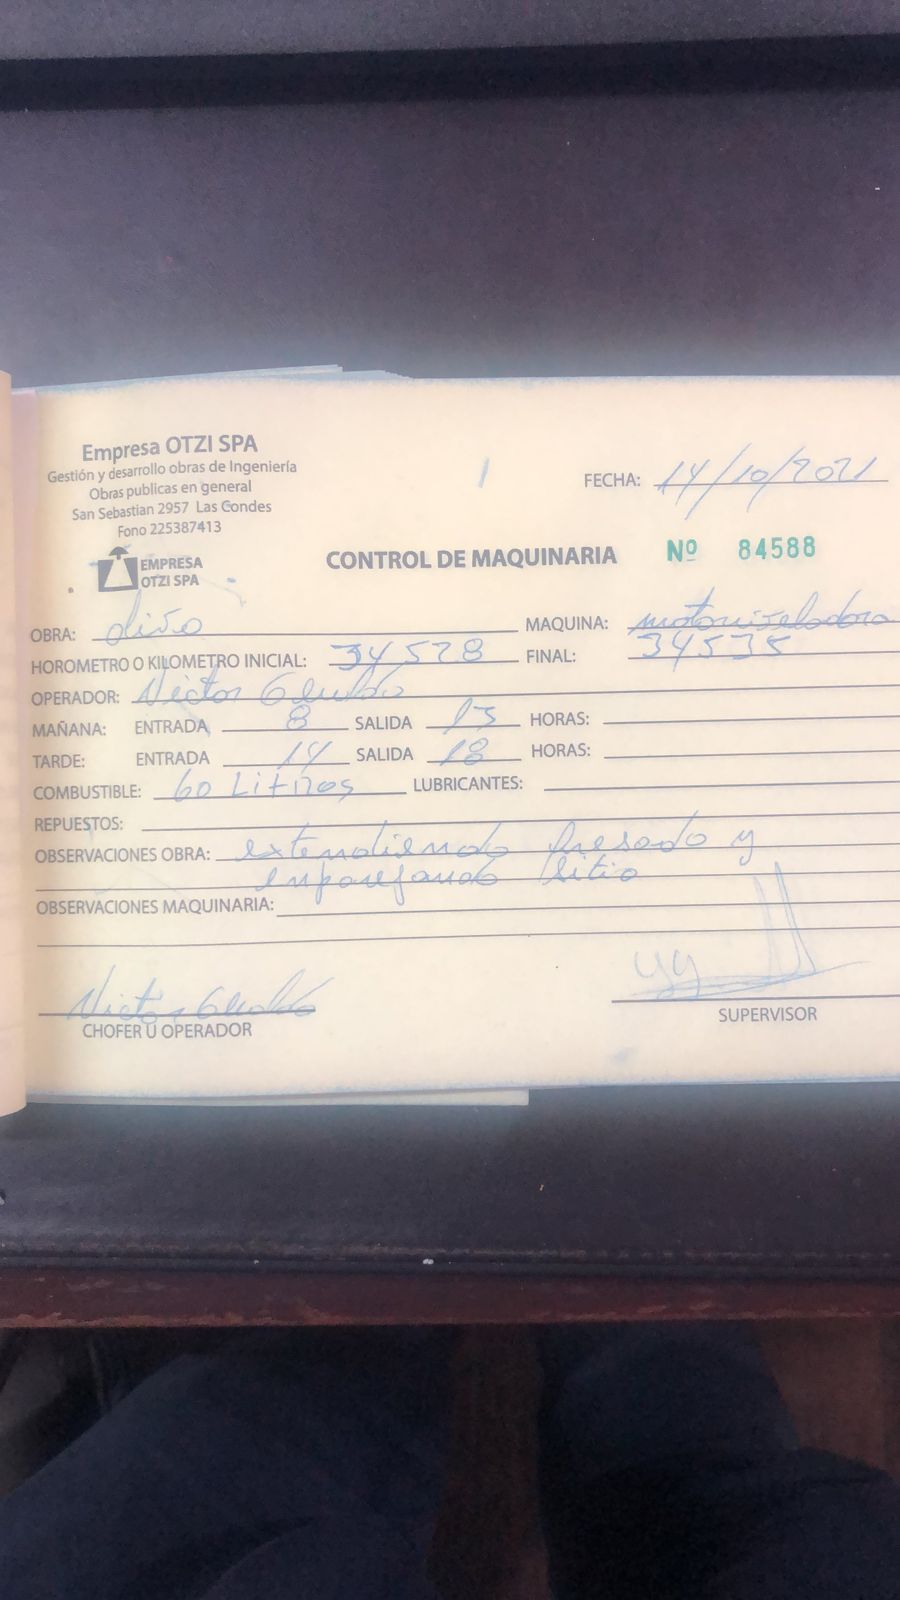 Empresa OTZI SPA
Gestión y desarrollo obras de Ingeniería
Obras publicas en general
San Sebastian 2957 Las Condes
Fono 225387413
EMPRESA
OTZI SPA
FECHA: 14/10/2021
CONTROL DE MAQUINARIA Nº 84588
OBRA: MAQUINA: motoniveladora
HOROMETRO O KILOMETRO INICIAL: 34528 FINAL: 34535
OPERADOR: Victor
MAÑANA: ENTRADA 8 SALIDA 13 HORAS:
TARDE: ENTRADA 14 SALIDA 18 HORAS:
COMBUSTIBLE: 60 Litros LUBRICANTES:
REPUESTOS:
OBSERVACIONES OBRA: extendiendo fresado y
enparejando sitio
OBSERVACIONES MAQUINARIA:
Victor
CHOFER U OPERADOR
SUPERVISOR